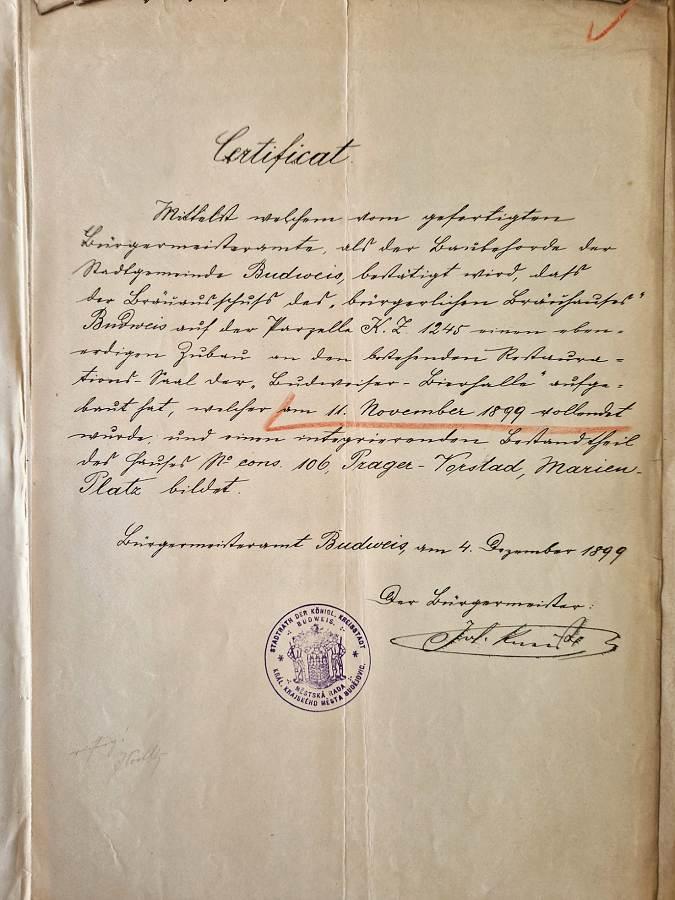 Certificat.
Mittelst welchem vom gefertigten
Bürgermeisteramte, als der Baubehörde der
Stadtgemeinde Budweis, bestätigt wird, dass
der Bräuausschuss des „bürgerlichen Brauhauses"
Budweis auf der Parzelle K. Z. 1245 einen eben-
erdigen Zubau an den bestehenden Restaura-
tions-Saal der „Budweiser-Bierhalle" aufge-
baut hat, welcher am 11. November 1899 vollendet
wurde, und einen integrierenden Bestandtheil
des Hauses No cons. 106, Prager-Vorstad, Marien-
Platz bildet.
Bürgermeisteramt Budweis, am 4. Dezember 1899
Der Bürgermeister:
STADTRATH DER KÖNIGL. KREISSTADT
BUDWEIS.
MĚSTSKÁ RADA
KRÁL. KRAJSKÉHO MĚSTA BUDĚJOVIC.